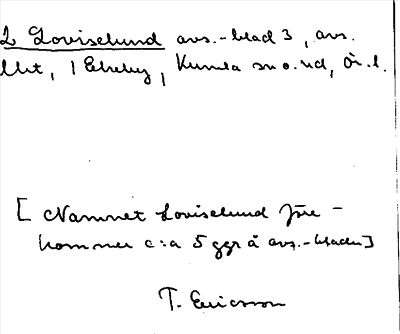 2 Loviselund avs.-blad 3, avs.
litt, i Ekeby, Kumla sn o. hd, Ör. l.
[Namnet Loviselund före-
kommer c:a 5 ggr å avs.-bladen]
T. Ericsson